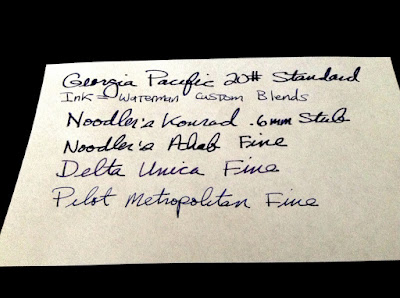 Georgia Pacific 20# Standard
Ink = Waterman Custom Blends
Noodler's Konrad .6mm Stub
Noodler's Ahab Fine
Delta Unica Fine
Pilot Metropolitan Fine